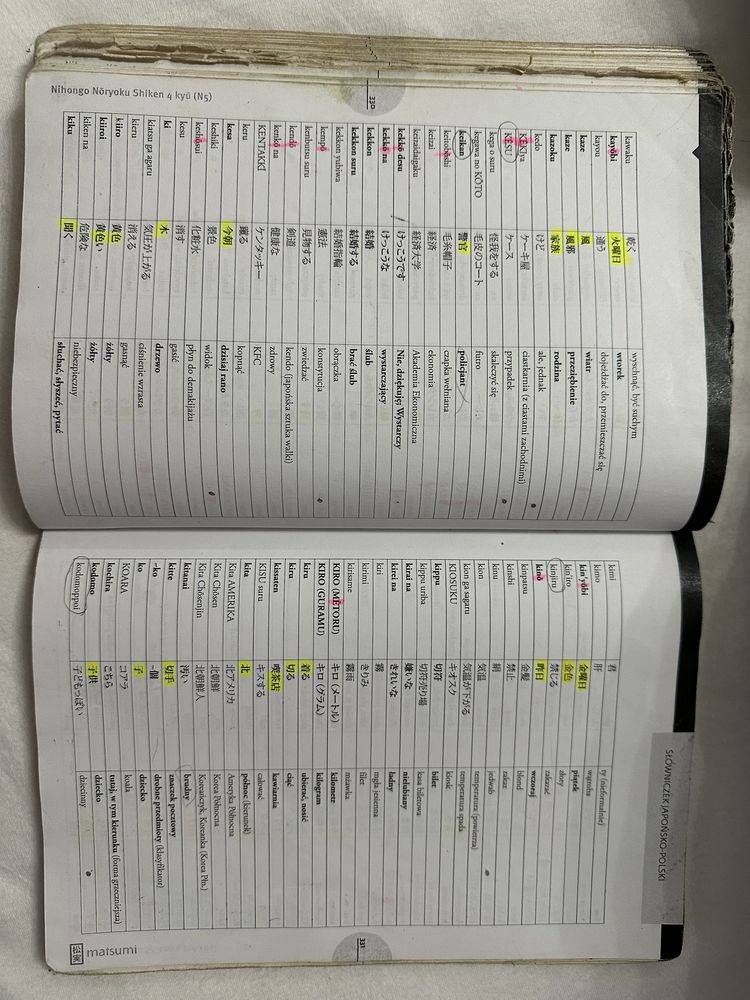 Nihongo Nōryoku Shiken 4 kyū (N5)
kawaku 乾く wyschnąć, być suchym
kayōbi 火曜日 wtorek
kayou 通う dojeżdżać do, przemieszczać się
kaze 風 wiatr
kaze 風邪 przeziębienie
kazoku 家族 rodzina
kedo けど ale, jednak
KĒKIya ケーキ屋 ciastkarnia (z ciastami zachodnimi)
KĒSU ケース przypadek
kega o suru 怪我をする skaleczyć się
kegawa no KŌTO 毛皮のコート futro
keikan 警官 policjant
keitobōshi 毛糸帽子 czapka wełniana
keizai 経済 ekonomia
keizaidaigaku 経済大学 Akademia Ekonomiczna
kekkō desu けっこうです Nie, dziękuję; Wystarczy
kekkō na けっこうな wystarczający
kekkon 結婚 ślub
kekkon suru 結婚する brać ślub
kekkon yubiwa 結婚指輪 obrączka
kempō 憲法 konstytucja
kenbutsu suru 見物する zwiedzać
kendō 剣道 kendo (japońska sztuka walki)
kenkō na 健康な zdrowy
KENTAKKI ケンタッキー KFC
keru 蹴る kopnąć
kesa 今朝 dzisiaj rano
keshiki 景色 widok
keshōsui 化粧水 płyn do demakijażu
kesu 消す gasić
ki 木 drzewo
kiatsu ga agaru 気圧が上がる ciśnienie wzrasta
kieru 消える gasnąć
kiiro 黄色 żółty
kiiroi 黄色い żółty
kiken na 危険な niebezpieczny
kiku 聞く słuchać, słyszeć, pytać
330
SŁOWNICZEK JAPOŃSKO-POLSKI
kimi 君 ty (nieformalnie)
kimo 肝 wątroba
kin'yōbi 金曜日 piątek
kin'iro 金色 złoty
kinjiru 禁じる zakazać
kinō 昨日 wczoraj
kinpatsu 金髪 blond
kinshi 禁止 zakaz
kinu 絹 jedwab
kion 気温 temperatura (powietrza)
kion ga sagaru 気温が下がる temperatura spada
KIOSUKU キオスク kiosk
kippu 切符 bilet
kippu uriba 切符売り場 kasa biletowa
kirai na 嫌いな nielubiany
kirei na きれいな ładny
kiri 霧 mgła jesienna
kirimi きりみ filet
kirisame 霧雨 mżawka
KIRO (MĒTORU) キロ (メートル) kilometr
KIRO (GURAMU) キロ (グラム) kilogram
kiru 着る ubierać, nosić
kiru 切る ciąć
kissaten 喫茶店 kawiarnia
KISU suru キスする całować
kita 北 północ (kierunek)
Kita AMERIKA 北アメリカ Ameryka Północna
Kita Chōsen 北朝鮮 Korea Północna
Kita Chōsenjin 北朝鮮人 Koreańczyk, Koreanka (Korea Płn.)
kitanai 汚い brudny
kitte 切手 znaczek pocztowy
~ko ~個 drobne przedmioty (klasyfikator)
ko 子 dziecko
KOARA コアラ koala
kochira こちら tutaj, w tym kierunku (forma grzeczniejsza)
kodomo 子供 dziecko
kodomoppoi 子どもっぽい dziecinny
331
matsumi